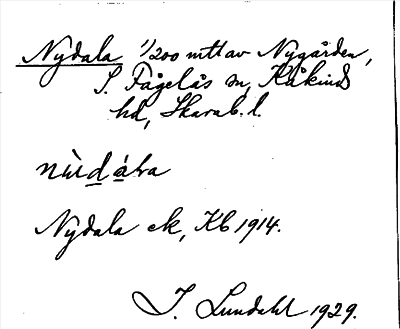 Nydala 1/200 mtt av Nygården,
S. Fågelås sn, Kåkinds
hd, Skarab. l.
nùdáɫa
Nydala ek, Kb 1914.
I. Lundahl 1929.